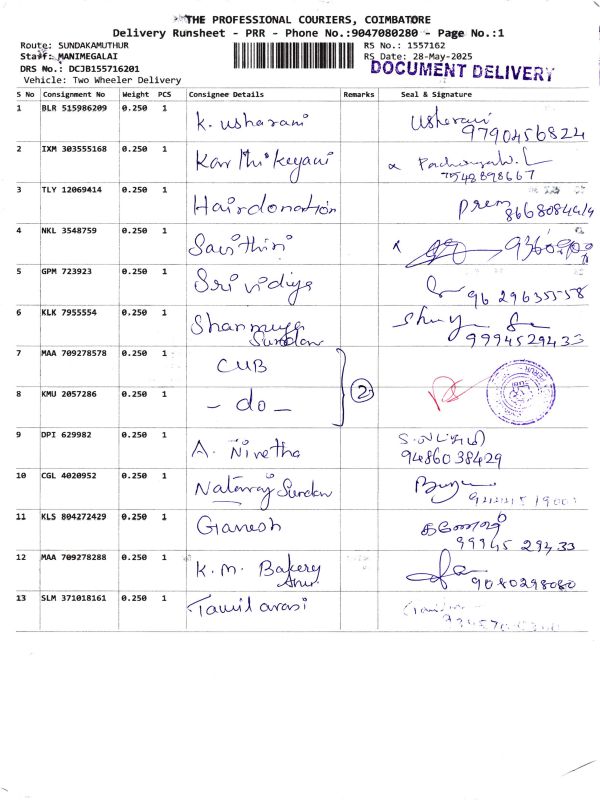 THE PROFESSIONAL COURIERS, COIMBATORE
Delivery Runsheet - PRR - Phone No.:9047080280 - Page No.:1
Route: SUNDAKAMUTHUR RS No.: 1557162
Staff: MANIMEGALAI RS Date: 28-May-2025
DRS No.: DCJB155716201 DOCUMENT DELIVERY
Vehicle: Two Wheeler Delivery
S No Consignment No Weight PCS Consignee Details Remarks Seal & Signature
1 BLR 515986209 0.250 1 K. usharani Usharani
9790456824
2 IXM 303555168 0.250 1 Karthikeyani
7548898667
3 TLY 12069414 0.250 1 Hairdonation prem
4 NKL 3548759 0.250 1 Savithiri
5 GPM 723923 0.250 1 Sri vidiya
9629635558
6 KLK 7955554 0.250 1 Shanmuga
Sundar 9994529433
7 MAA 709278578 0.250 1 CUB
2
8 KMU 2057286 0.250 1 - do -
9 DPI 629982 0.250 1 A. Nivetha
9486038429
10 CGL 4020952 0.250 1 Natarraj Sundar
11 KLS 804272429 0.250 1 Ganesh கணேஷ்
99945 29433
12 MAA 709278288 0.250 1 K.M. Bakery
9080298080
13 SLM 371018161 0.250 1 Tamil arasi